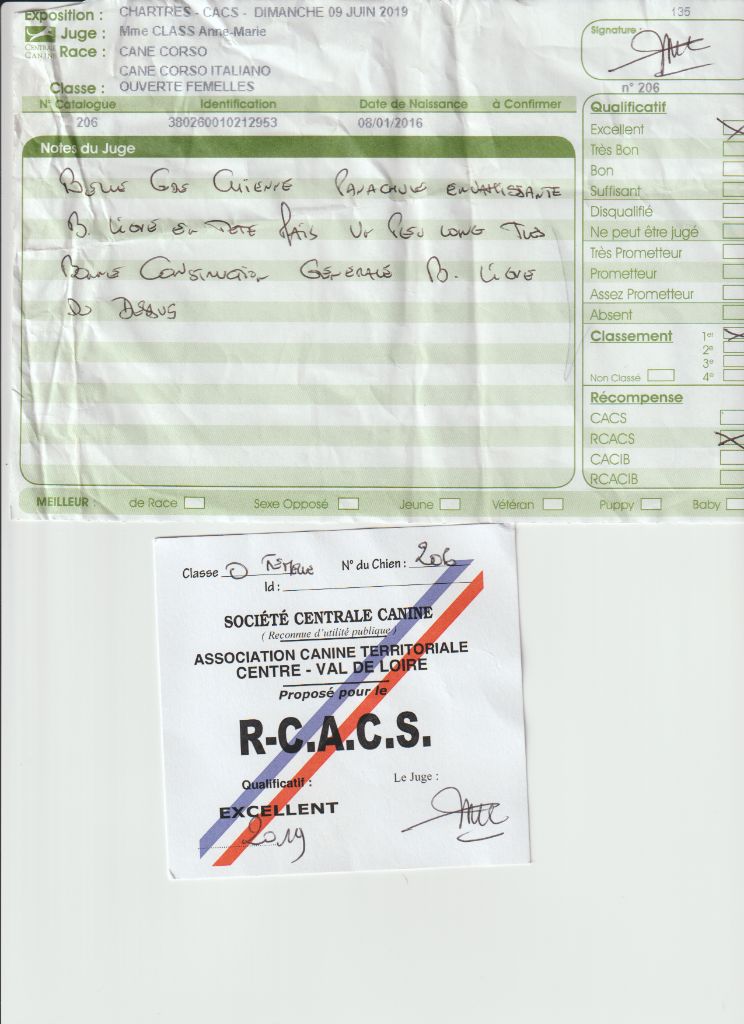 Exposition : CHARTRES - CACS - DIMANCHE 09 JUIN 2019
135
Juge : Mme CLASS Anne-Marie
Signature :
CENTRALE CANINE
Race : CANE CORSO
CANE CORSO ITALIANO
Classe : OUVERTE FEMELLES
n° 206
N° Catalogue Identification Date de Naissance à Confirmer
206 380260010212953 08/01/2016
Notes du Juge
BELLE CHIENNE ENVAHISSANTE
B. LIGNE EN TETE MAIS UN PEU LONG TRES
BONNE CONSTRUCTION GENERALE B. LIGNE
DU DESSUS
Qualificatif
Excellent
Très Bon
Bon
Suffisant
Disqualifié
Ne peut être jugé
Très Prometteur
Prometteur
Assez Prometteur
Absent
Classement 1er
2e
3e
Non Classé 4e
Récompense
CACS
RCACS
CACIB
RCACIB
MEILLEUR : de Race Sexe Opposé Jeune Vétéran Puppy Baby
Classe O FEMELLE N° du Chien : 206
Id :
SOCIÉTÉ CENTRALE CANINE
( Reconnue d'utilité publique )
ASSOCIATION CANINE TERRITORIALE
CENTRE - VAL DE LOIRE
Proposé pour le
R-C.A.C.S.
Qualificatif :
Le Juge :
EXCELLENT
2019